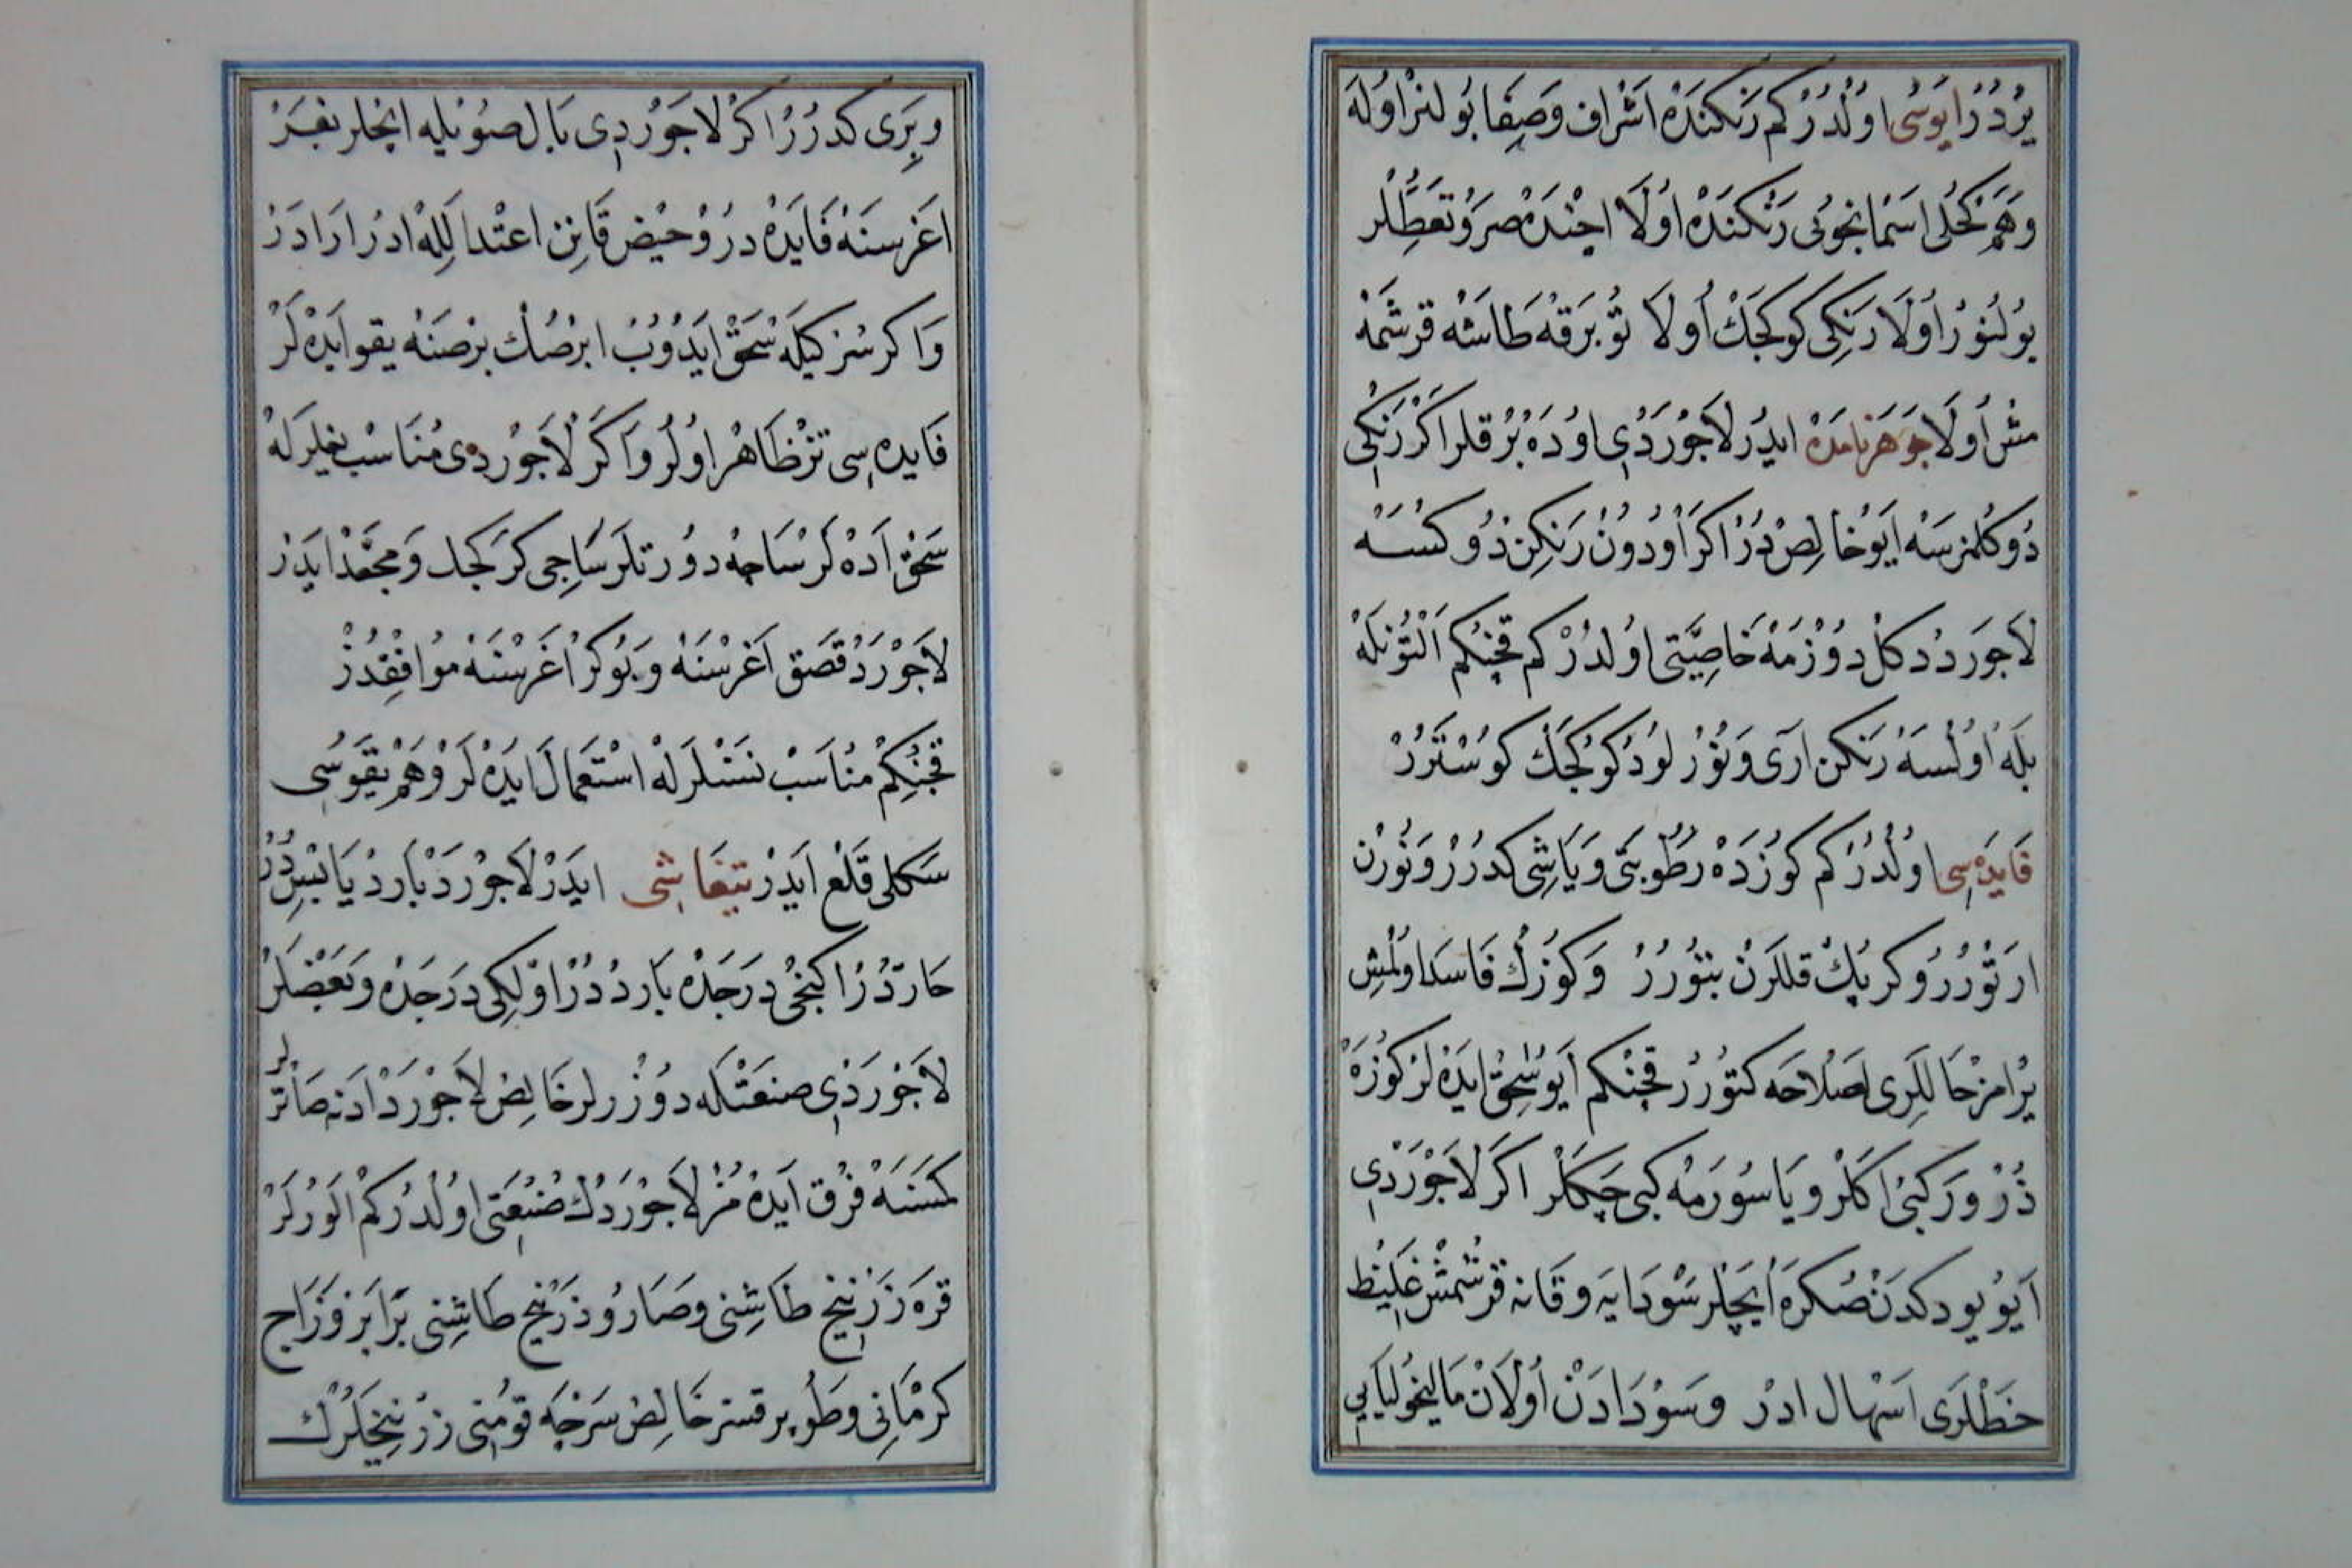 يردر ايوسى اولدركم رنكنده اشراف وصفا بولنر اوله
وهم كحلى اسمانجونى رنكنده اولا اچنده صرو تعطلر
بولنور اولا رنكى كوكجك اولا تو برقه طاشه قرشمه
مش اولا جوهرنامده ايدر لاجوردى اوده برقلر اكر رنكى
دوكلمزسه ايو خالصدر اكر اودون رنكن دوكسه
لاجورد دكل دوزمه خاصيتى اولدركم قچنكم التونله
بله اولسه رنكن ارى ونورلو دكوكجك كوسترر
فايده سى اولدركم كوزده رطوبتى وياشى كدرر ونورن
ارتورر وكرپك قللرن بتورر وكوزك فاسد اولمش
يرامز حاللرى اصلاحه كتورر قچنكم ايو سحق ايده لر كوزه
ذرور كبى اكلر ويا سورمه كبى چكلر اكر لاجوردى
ايو يودكدن صكره ايچلر سودايه وقانه قرشمش غليظ
خطلرى اسهال ادر وسودادن اولان ماليخوليايى
وبرى كدرر اكر لاجوردى بال صويله ايچلر بغر
اغرسنه فايده در وحيض قانن اعتدالله ادرار ادر
واكر سركيله سحق ايدوب ابرصك برصنه يقو ايده لر
فايده سى تز ظاهر اولر واكر لاجوردى مناسب نسلرله
سحق اده لر ساچه دورتلر ساجى كركجك ومجعد ايدر
لاجورد قصق اغرسنه وبوكر اغرسنه موافقدر
قچنكم مناسب نسنلرله استعمال ايده لر وهم يقوسى
سكلى قلع ايدر تيفاشى ايدر لاجورد بارد يابسدر
حاردر اكنجى درجده بارددر اولكى درجده وبعضلر
لاجوردى صنعتله دوزرلر خالص لاجورد ادنه صاترلر
كمسنه فرق ايده مز لاجوردك صنعتى اولدركم الورلر
قره زرنيخ طاشنى وصارو زرنيخ طاشنى برابر وزاج
كرمانى وطوپرقسز خالص سرجه قومنى زرنيخلرك